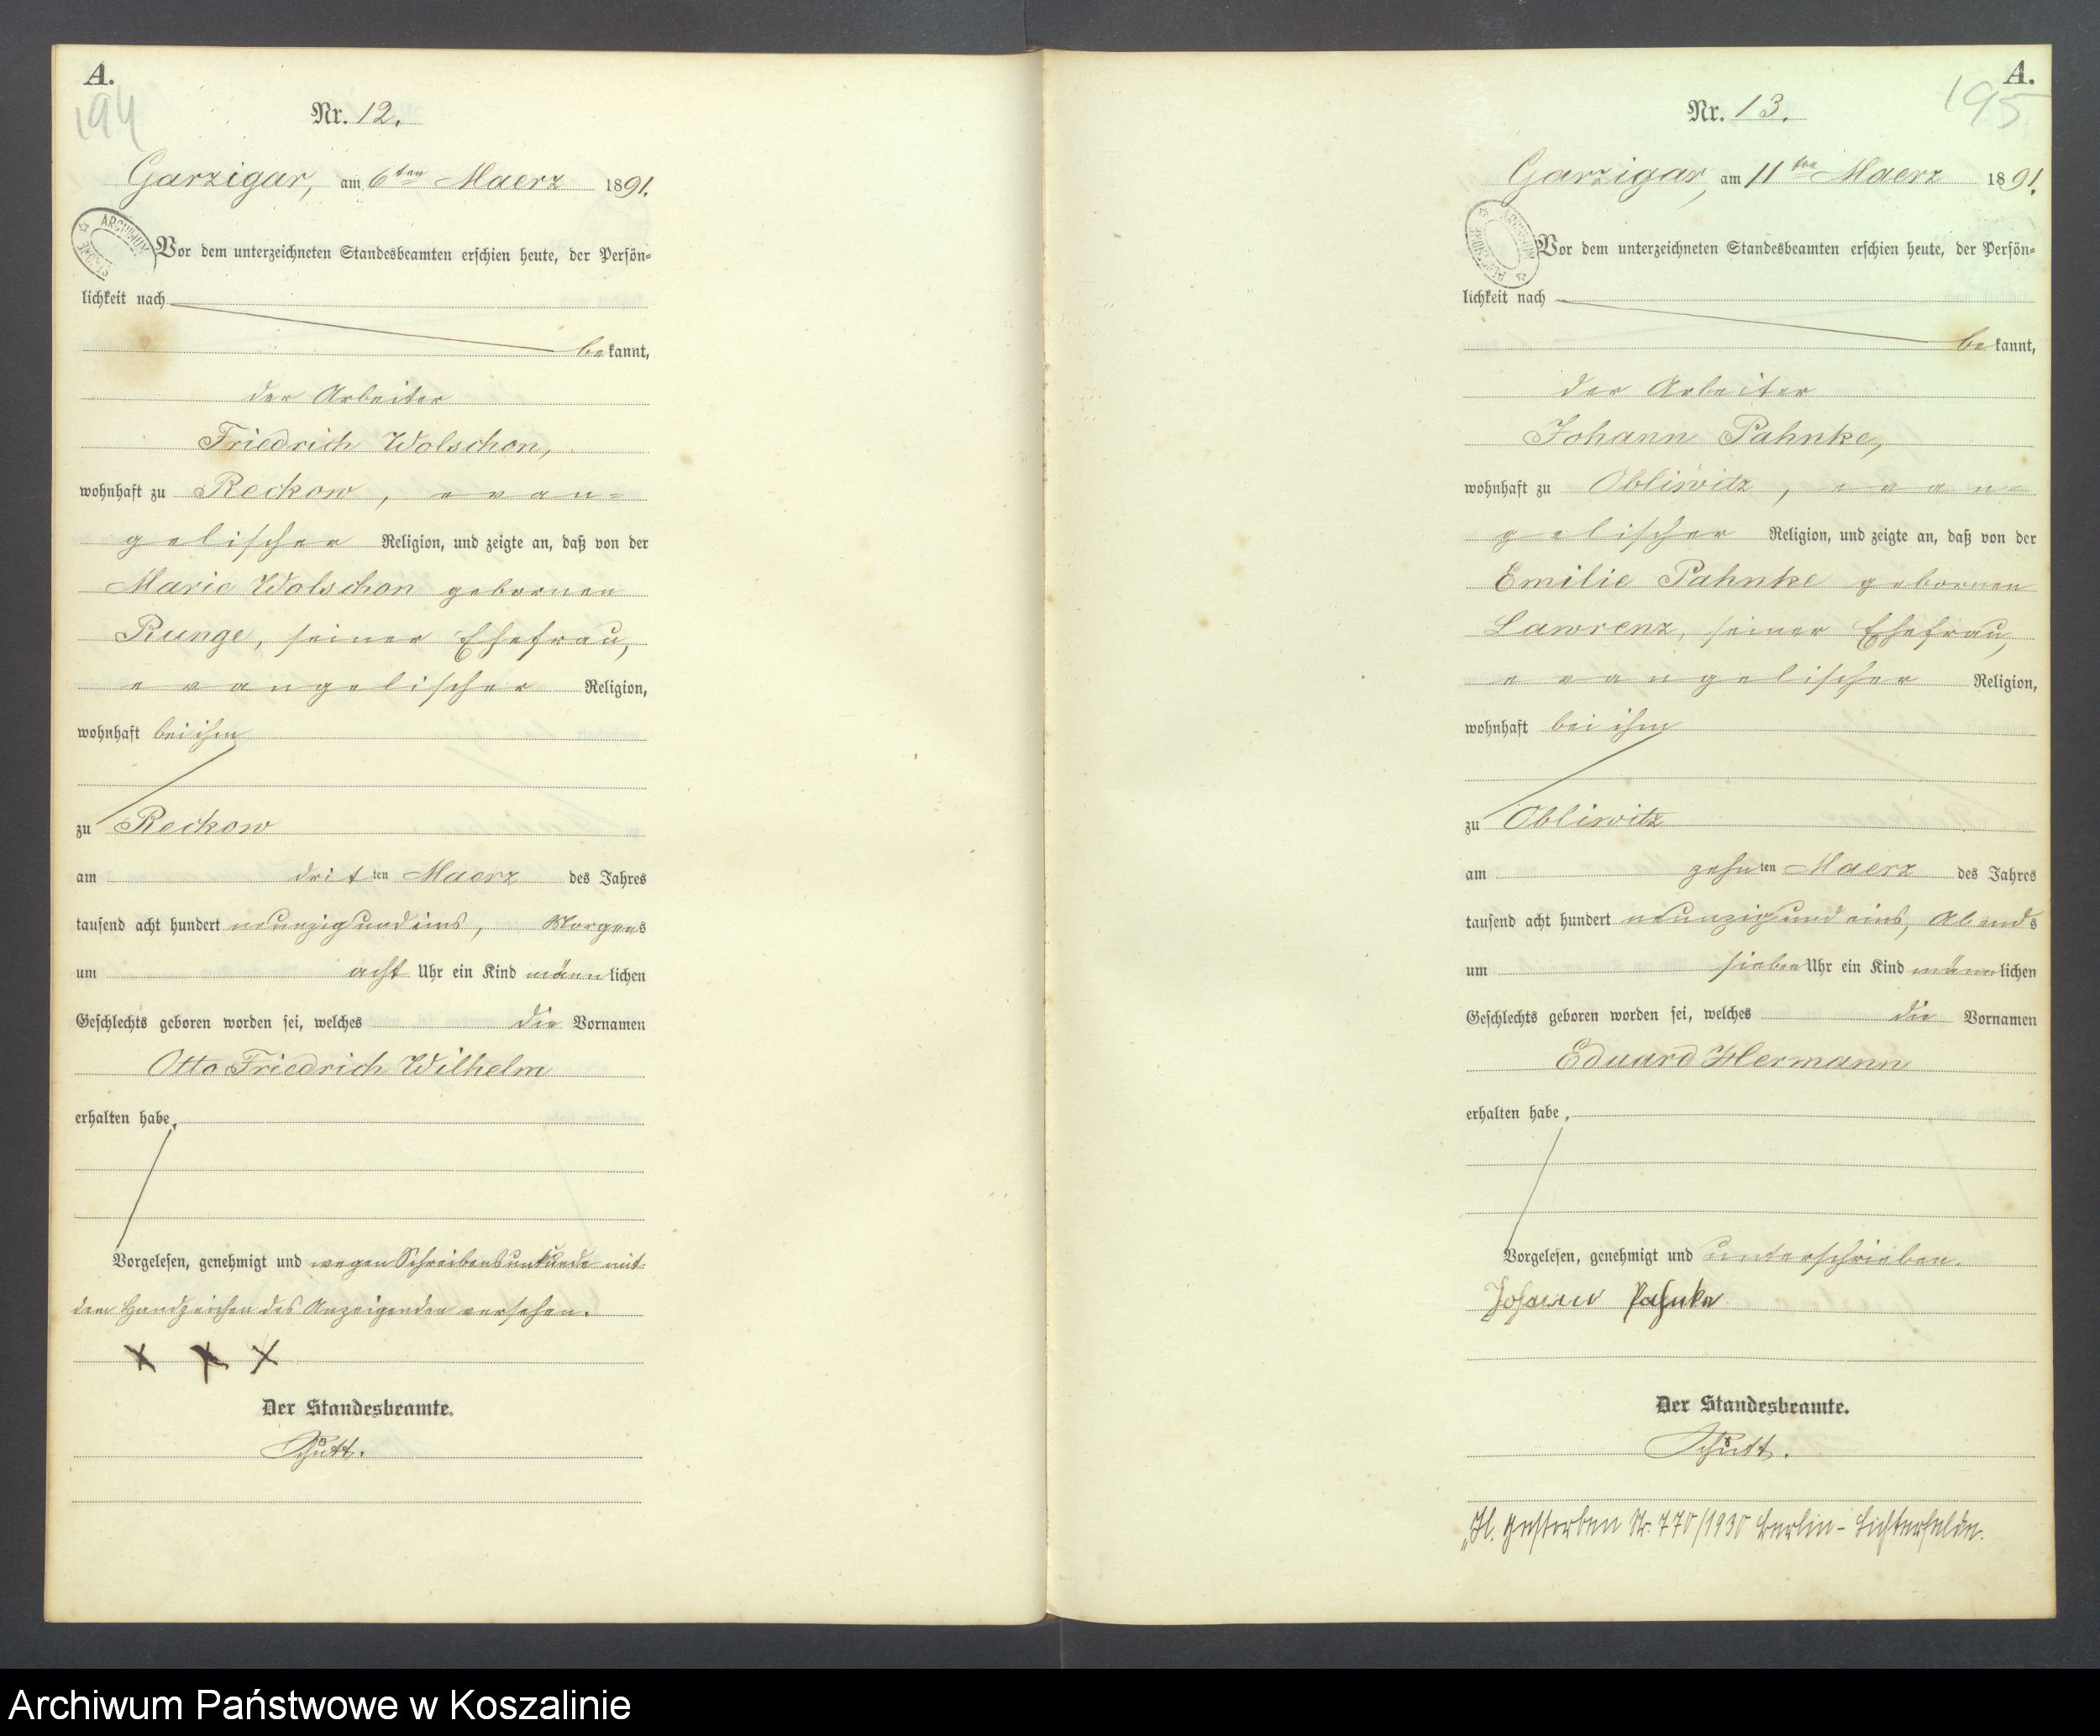 A.
194
Nr. 12.
Garzigar, am 6ten Maerz 1891.
Vor dem unterzeichneten Standesbeamten erschien heute, der Persön-
lichkeit nach
bekannt,
der Arbeiter
Friedrich Wolschon,
wohnhaft zu Reckow, evan-
gelischer Religion, und zeigte an, daß von der
Marie Wolschon gebornen
Runge, seiner Ehefrau,
evangelischer Religion,
wohnhaft bei ihm
zu Reckow
am dritten Maerz des Jahres
tausend acht hundert neunzig und eins, Morgens
um acht Uhr ein Kind männlichen
Geschlechts geboren worden sei, welches die Vornamen
Otto Friedrich Wilhelm
erhalten habe.
Vorgelesen, genehmigt und wegen Schreibensunkunde mit
dem Handzeichen des Anzeigenden versehen.
X X X
Der Standesbeamte.
Schütt.
A.
195
Nr. 13.
Garzigar, am 11ten Maerz 1891.
ARCHIWUM
Vor dem unterzeichneten Standesbeamten erschien heute, der Persön-
lichkeit nach
bekannt,
der Arbeiter
Johann Pahnke,
wohnhaft zu Obliwitz, evan-
gelischer Religion, und zeigte an, daß von der
Emilie Pahnke gebornen
Lawrenz, seiner Ehefrau,
evangelischer Religion,
wohnhaft bei ihm
zu Obliwitz
am zehnten Maerz des Jahres
tausend acht hundert neunzig und eins, Abends
um sieben Uhr ein Kind männlichen
Geschlechts geboren worden sei, welches die Vornamen
Eduard Hermann
erhalten habe.
Vorgelesen, genehmigt und unterschrieben.
Johann Pahnke
Der Standesbeamte.
Schütt.
gestorben Nr. 770/1930 Berlin-Lichterfelde.
Archiwum Państwowe w Koszalinie